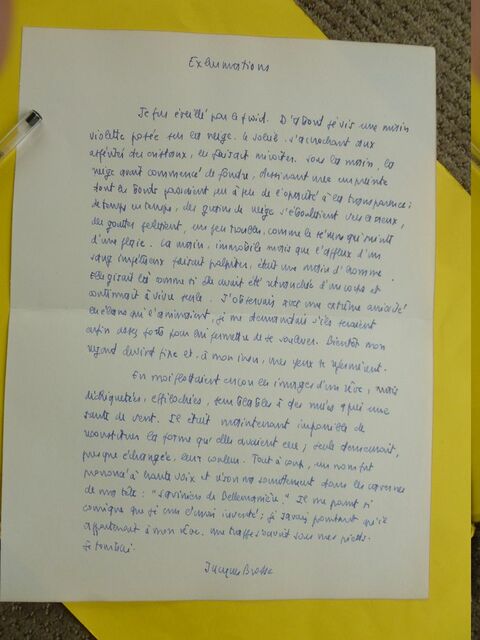 Exhumations
Je fus éveillé par le froid. D'abord je vis une main
violette posée sur la neige. Le soleil s'accrochant aux
des cristaux, les faisait miroiter. Sous la main, la
neige avait commencé de fondre, dessinant une empreinte
dont les bords passaient peu à peu de l'opacité à la transparence ;
de temps en temps, des grains de neige s'éboulaient vers le creux,
des gouttes perlaient, un peu troubles, comme le sérum qui suinte
d'une plaie. La main, immobile mais que l'afflux d'un
sang impétueux faisait palpiter, était une main d'homme.
Elle gisait là comme si elle avait été retranchée d'un corps et
continuait à vivre seule. J'observais avec une extrême anxiété
les élans qui l'animaient, je me demandais s'ils seraient
enfin assez forts pour lui permettre de se soulever. Bientôt mon
regard devint fixe et, à mon insu, mes yeux se refermèrent.
En moi flottaient encore les images d'un rêve, mais
déchiquetées, effilochées, semblables à des nuées après une
saute de vent. Il était maintenant impossible de
reconstituer la forme qu'elles avaient eue ; seule demeurait,
presque inchangée, leur couleur. Tout à coup, un nom fut
prononcé à haute voix et résonna sourdement dans les cavernes
de ma tête : " Savinien de Bellemanière." Il me parut si
comique que je crus l'avoir inventé ; je savais pourtant qu'il
appartenait à mon rêve. Une trappe s'ouvrit sous mes pieds.
Je tombai.
Jacques Brosse